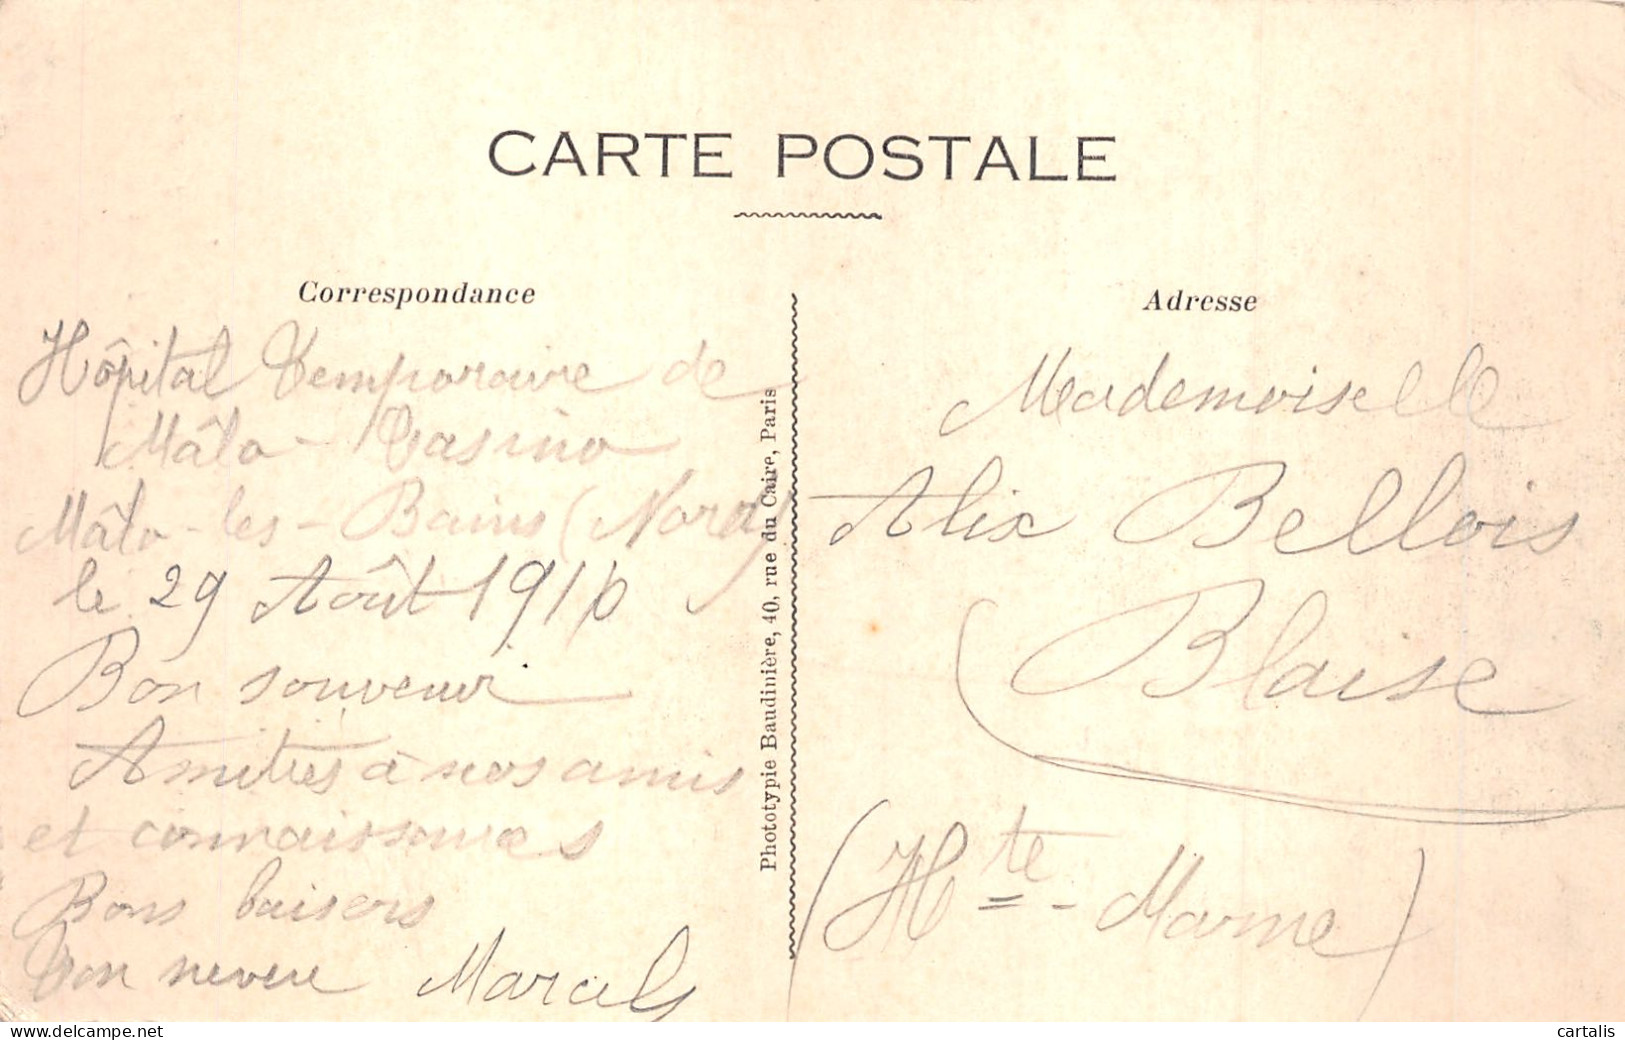 CARTE POSTALE
Correspondance
Hôpital Temporaire de
Mâlo - Casino
Mâlo-les-Bains (Nord)
le 29 Août 1916
Bon souvenir
Amitiés à nos amis
et connaissances
Bons baisers
Ton neveu Marcel
Phototypie Baudinière, 40, rue du Caire, Paris
Adresse
Mademoiselle
Alix Bellois
Blaise
(Hte - Marne)
cartalis